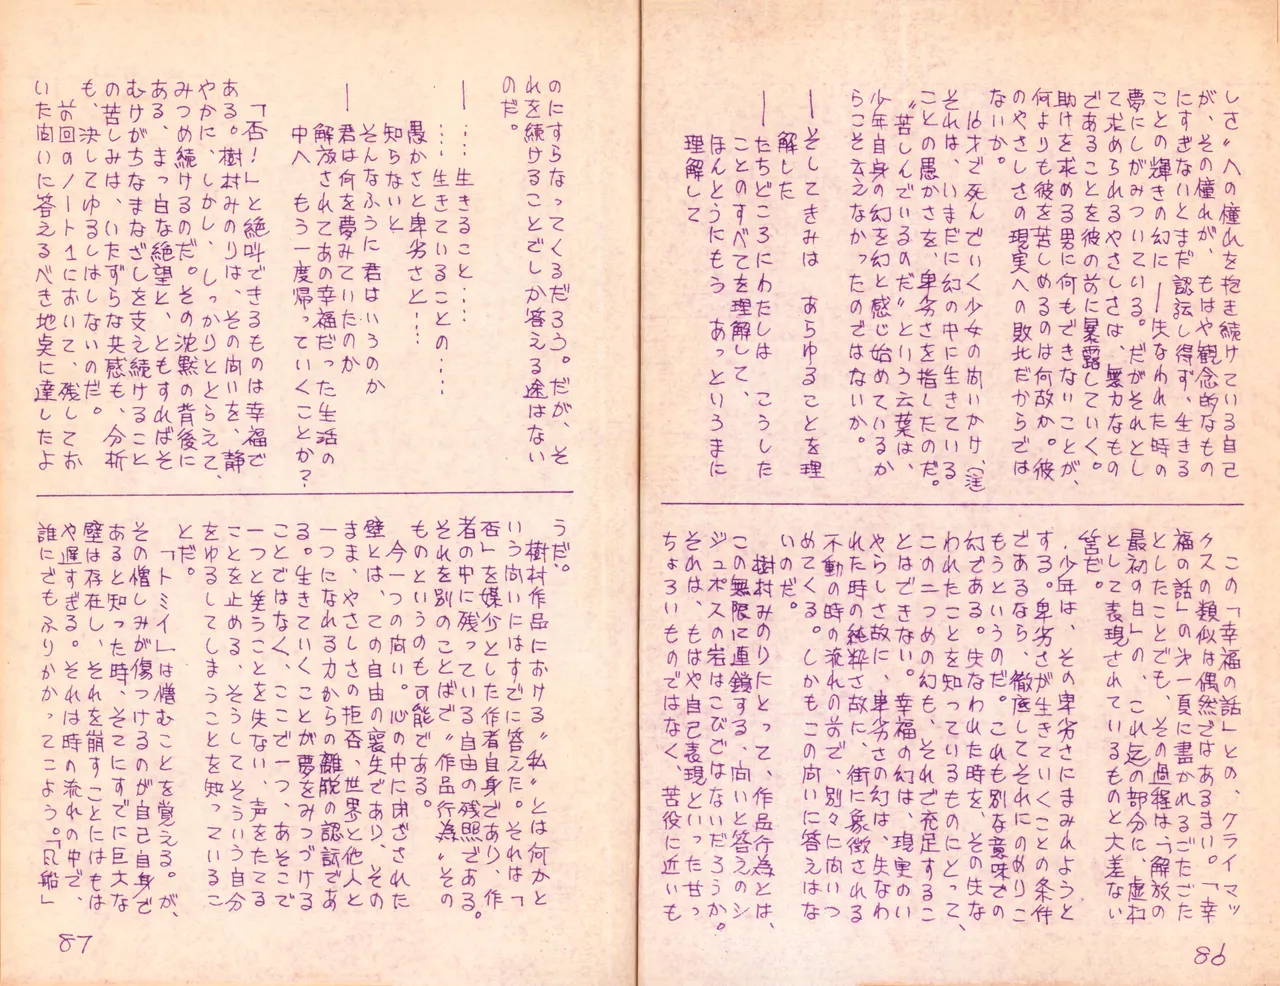 しさ〟への憧れを抱き続けている自己
が、その憧れが、もはや観念的なもの
にすぎないとまだ認証し得ず、生きる
ことの輝きの幻に――失なわれた時の
夢にしがみついている。だがそれとし
て求められるやさしさは、無力なもの
であることを彼の前に暴露していく。
助けを求める男に何もできないことが、
何よりも彼を苦しめるのは何故か。彼
のやさしさの現実への敗北だからでは
ないか。
16才で死んでいく少女の問いかけ、(注)
それは、いまだに幻の中に生きている
ことの愚かさを、卑劣さを指したのだ。
〝苦しんでいるのだ〟という言葉は、
少年自身の幻を幻と感じ始めているか
らこそ云えなかったのではないか。
――そしてきみは　あらゆることを理
解した
――たちどころにわたしは　こうした
ことのすべてを理解して、
ほんとうにもう　あっというまに
理解して
この「幸福の話」との、クライマッ
クスの類似は偶然ではあるまい。「幸
福の話」の第一頁に畫かれるごたごた
としたことでも、その過程は「解放の
最初の日」の、これ迄の部分に、虚ね
として表現されているものと大差ない
筈だ。
少年は、その卑劣さにまみれようと
する。卑劣さが生きていくことの条件
であるなら、徹底してそれにのめりこ
もうというのだ。これも別な意味での
幻である。失なわれた時を、その失な
われたことを知っているものにとって、
この二つめの幻も、それで充足するこ
とはできない。幸福の幻は、現実のい
やらしさ故に、卑劣さの幻は、失なわ
れた時の純粋さ故に、街に象徴される
不動の時の流れの前で、別々に向いつ
めてくる。しかもこの問いに答えはな
いのだ。
樹村みのりにとって、作品行為とは、
この無限に連鎖する、問いと答えのシ
ジュポスの岩はこびではないだろうか。
それは、もはや自己表現といった甘っ
ちょろいものではなく、苦役に近いも
86
のにすらなってくるだろう。だが、そ
れを続けることでしか答える途はない
のだ。
――……生きること……
……生きていることの……
愚かさと卑劣さと……
知らないと
そんなふうに君はいうのか
――君は何を夢みていたのか
解放されてあの幸福だった生活の
中へ　もう一度帰っていくことか？
「否！」と絶叫できるものは幸福で
ある。樹村みのりは、その問いを、静
やかに、しかし、しっかりととらえて、
みつめ続けるのだ。その沈黙の背後に
ある、まっ白な絶望と、ともすればそ
むけがちなまなざしを支え続けること
の苦しみは、いたずらな共感も、分析
も、決してゆるしはしないのだ。
前回のノート１において、残してお
いた問いに答えるべき地点に達したよ
うだ。
樹村作品における〝私〟とは何かと
いう問いにはすでに答えた。それは「
否」を媒介とした作者自身であり、作
者の中に残っている自由の残照である。
それを別のことばで〝作品行為〟その
ものというのも可能である。
今一つの問い。心の中に閉ざされた
壁とは、ての自由の寝生であり、その
まま、やさしさの拒否、世界と他人と
一つになれる力からの離脱の認証であ
る。生きていくことが夢をみつづける
ことではなく、ここで一つ、あそこで
一つと笑うことを失ない、声をたてる
ことを止める、そうしてそういう自分
をゆるしてしまうことを知っているこ
とだ。
「トミイ」は憎むことを覚える。が、
その憎しみが傷つけるのが自己自身で
あると知った時、そこにすでに巨大な
壁は存在し、それを崩すことにはもは
や遅すぎる。それは時の流れの中で、
誰にでもふりかかってこよう。「風船」
87